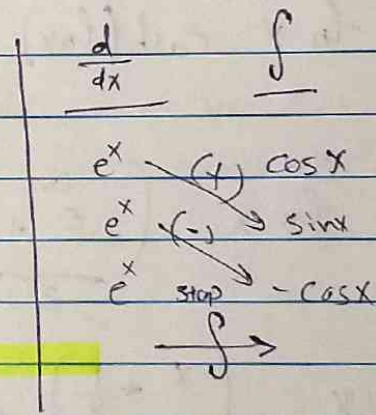 d/dx ∫
e^x (+) cos x
e^x (-) sin x
e^x stop - cos x
∫